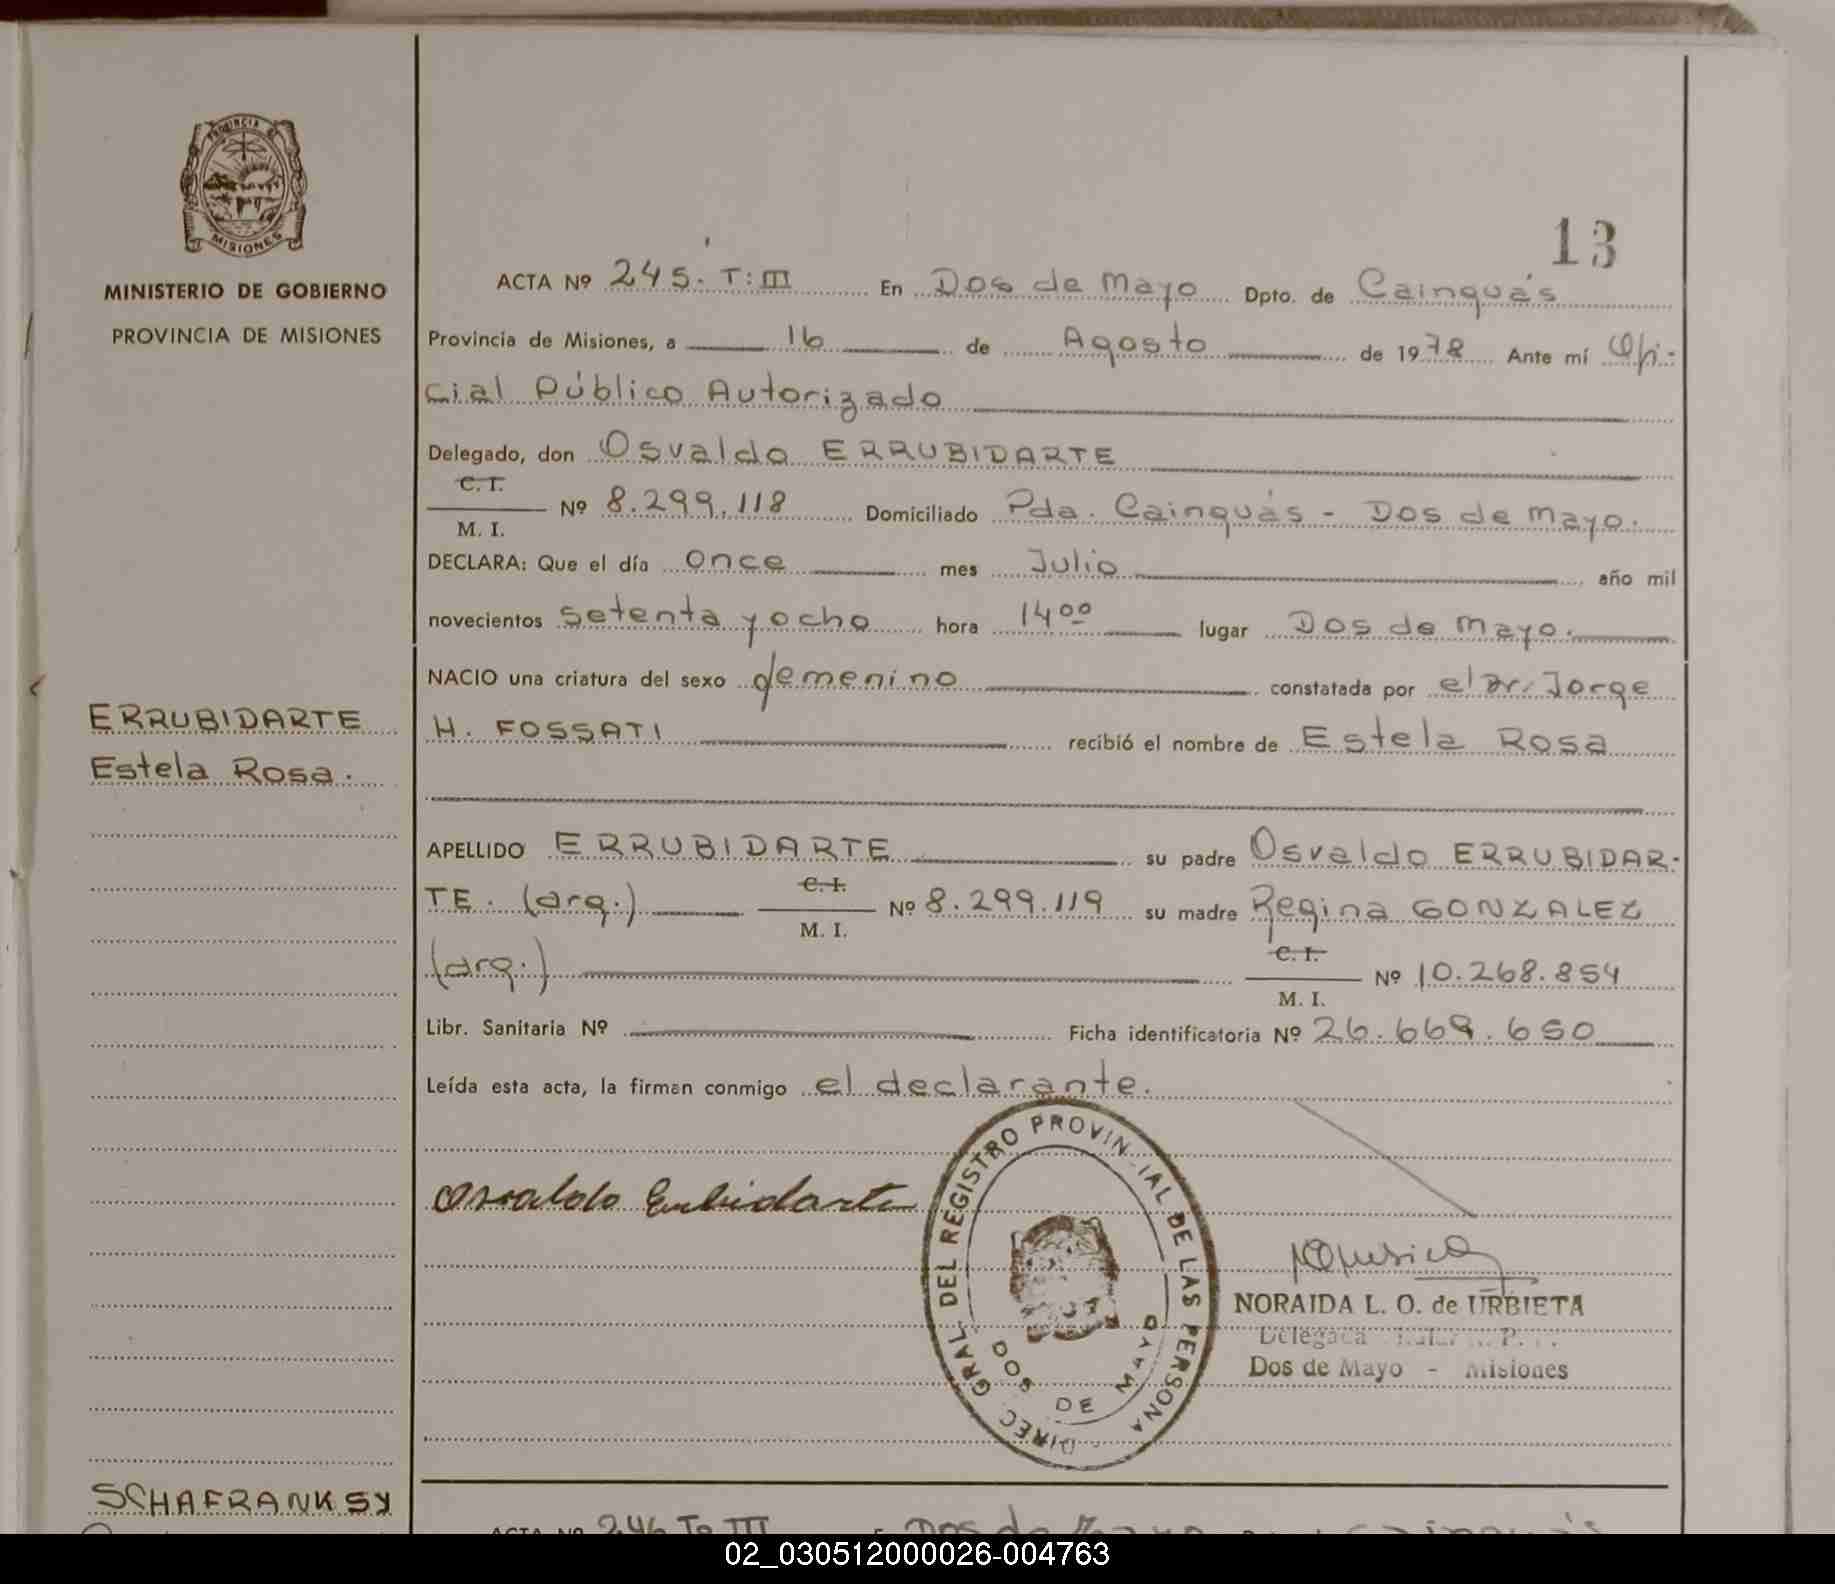 PROVINCIA DE
MISIONES
MINISTERIO DE GOBIERNO
PROVINCIA DE MISIONES
13
ACTA Nº 245. T: III En Dos de Mayo Dpto. de Cainguás
Provincia de Misiones, a 16 de Agosto de 1978 Ante mí Ofi-
cial Público Autorizado
Delegado, don Osvaldo ERRUBIDARTE
C. I.
M. I. Nº 8.299.118 Domiciliado Pda. Cainguás - Dos de Mayo.
DECLARA: Que el día once mes Julio año mil
novecientos setenta y ocho hora 14 00 lugar Dos de Mayo.
NACIO una criatura del sexo femenino constatada por el Dr. Jorge
H. FOSSATI recibió el nombre de Estela Rosa
ERRUBIDARTE
Estela Rosa.
APELLIDO ERRUBIDARTE su padre Osvaldo ERRUBIDAR-
TE. (arg.) C. I. M. I. Nº 8.299.119 su madre Regina GONZALEZ
(arg.) C. I. M. I. Nº 10.268.854
Libr. Sanitaria Nº Ficha identificatoria Nº 26.669.650
Leída esta acta, la firman conmigo el declarante.
Osvaldo Errubidarte
DIREC. GRAL. DEL REGISTRO PROVINCIAL DE LAS PERSONA
DOS DE MAYO
NORAIDA L. O. de URBIETA
Delegada
Dos de Mayo - Misiones
SCHAFRANKSY
ACTA Nº 246 Tº III En Dos de Mayo Dpto. de Cainguás
02_030512000026-004763